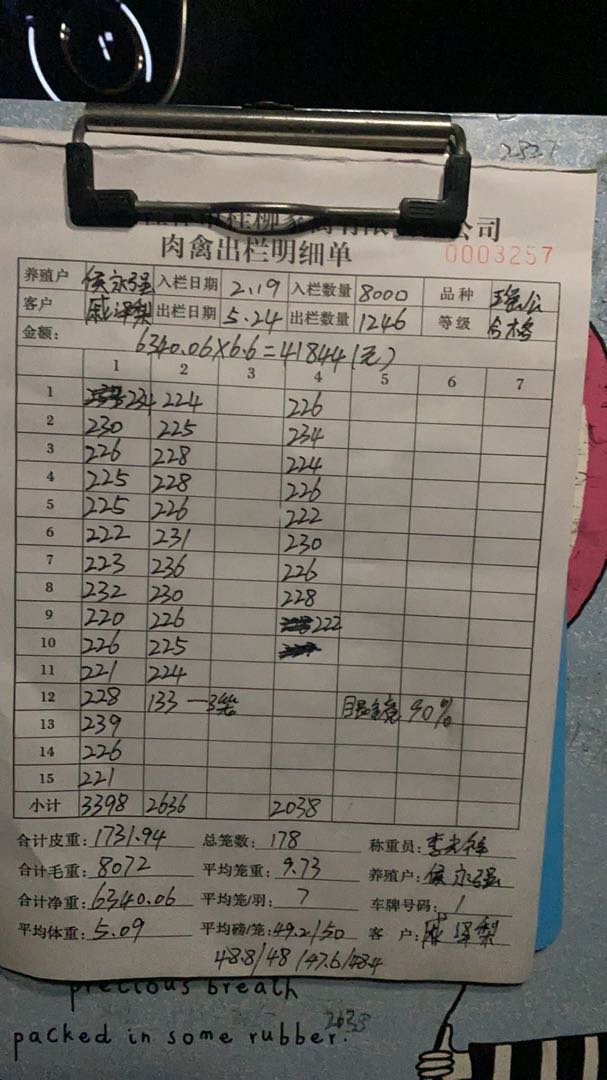 2827
桂柳家禽有限 公司
肉禽出栏明细单
0003257
养殖户 侯永强 入栏日期 2.19 入栏数量 8000 品种
客户 戚泽梨 出栏日期 5.24 出栏数量 1246 等级 合格
金额: 6340.06×6.6=41844(元)
1 2 3 4 5 6 7
1 234 224 226
2 230 225 234
3 226 228 224
4 225 228 226
5 225 226 222
6 222 231 230
7 223 236 226
8 232 230 228
9 220 226 222
10 226 225
11 221 224
12 228 133 一3笼 90%
13 239
14 226
15 221
小计 3398 2636 2038
合计皮重: 1731.94 总笼数: 178 称重员: 李
合计毛重: 8072 平均笼重: 9.73 养殖户: 侯永强
合计净重: 6340.06 平均笼/羽: 7 车牌号码: 1
平均体重: 5.09 平均磅/笼: 49.2/50 客户: 戚泽梨
48.8/48/47.6/48.4
precious breath
packed in some rubber.
2638